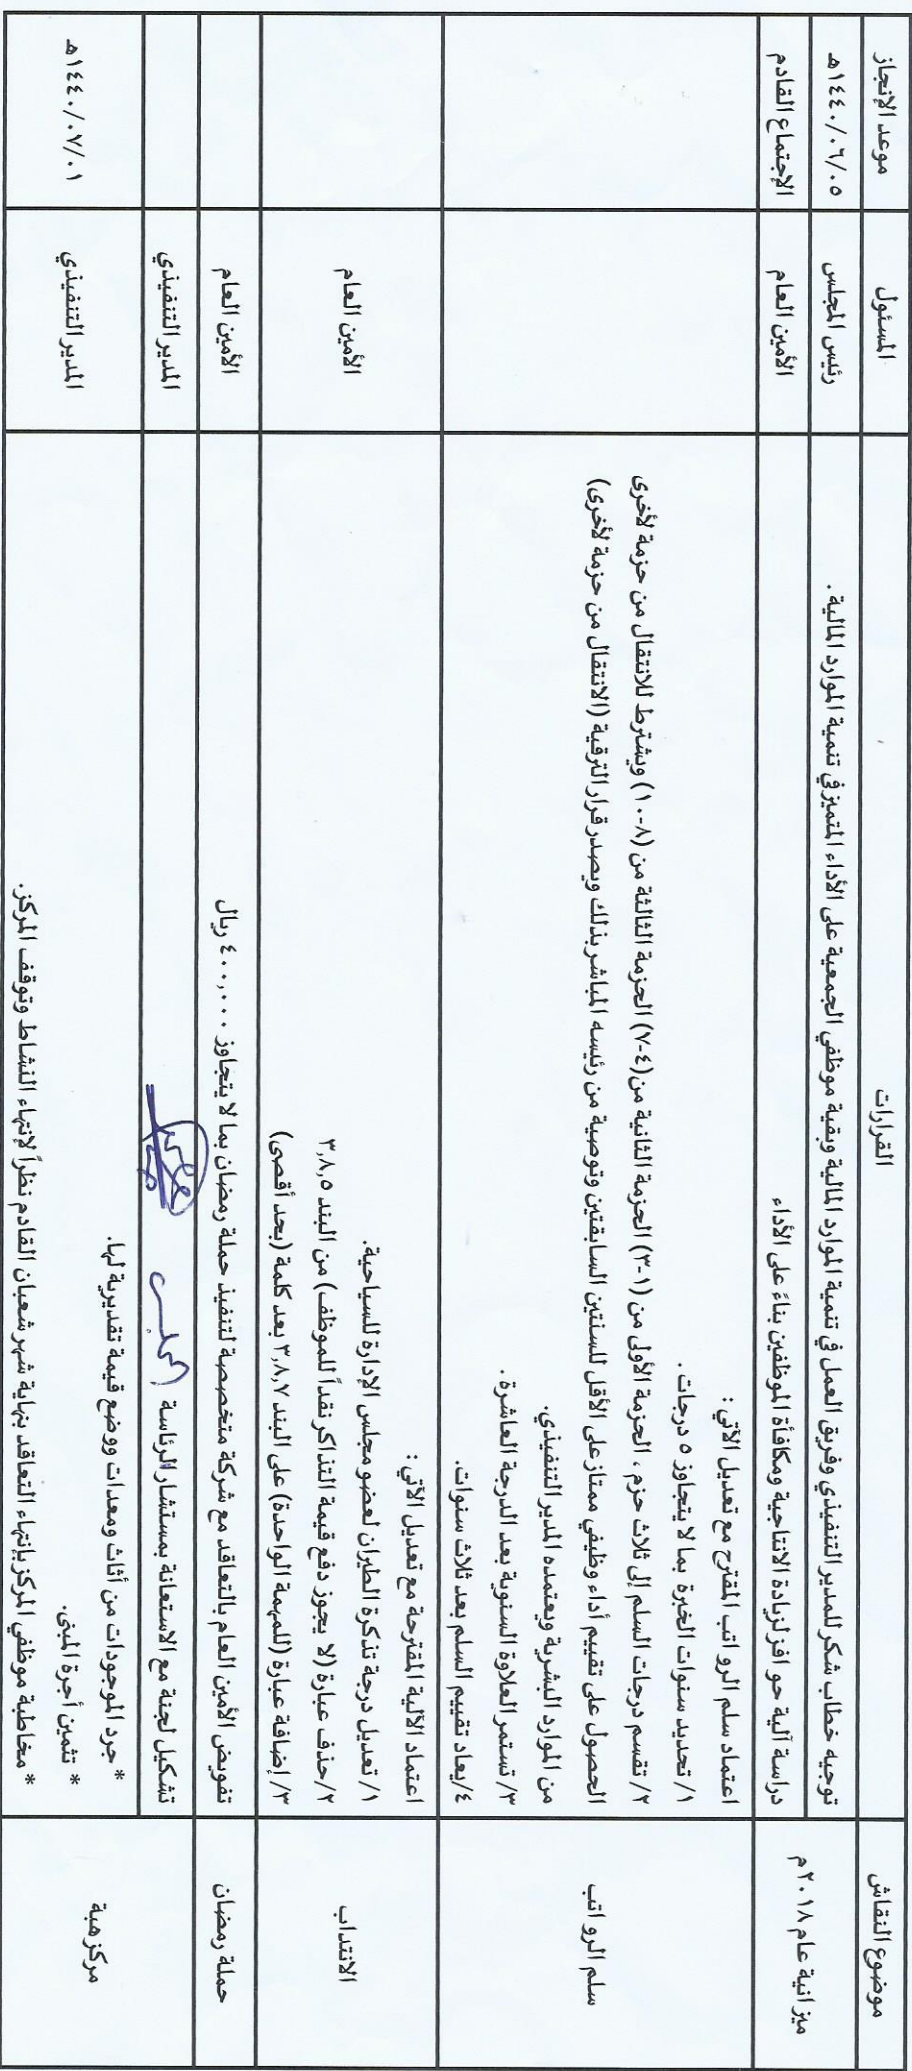 موضوع النقاش
القرارات
المسئول
موعد الإنجاز
ميزانية عام ٢٠١٨م
توجيه خطاب شكر للمدير التنفيذي وفريق العمل في تنمية الموارد المالية وبقية موظفي الجمعية على الأداء المتميز في تنمية الموارد المالية.
رئيس المجلس
١٤٤٠/٠٦/٠٥هـ
دراسة آلية حوافز لزيادة الانتاجية ومكافأة الموظفين بناءً على الأداء
الأمين العام
الإجتماع القادم
سلم الرواتب
اعتماد سلم الرواتب المقترح مع تعديل الآتي:
١/ تحديد سنوات الخبرة بما لا يتجاوز ٥ درجات.
٢/ تقسم درجات السلم إلى ثلاث حزم، الحزمة الأولى من (١-٣) الحزمة الثانية من (٤-٧) الحزمة الثالثة من (٨-١٠) ويشترط للانتقال من حزمة لأخرى
الحصول على تقييم أداء وظيفي ممتاز على الأقل للسنتين السابقتين وتوصية من رئيسه المباشر بذلك ويصدر قرار الترقية (الانتقال من حزمة لأخرى)
من الموارد البشرية ويعتمده المدير التنفيذي.
٣/ تستمر العلاوة السنوية بعد الدرجة العاشرة.
٤/ يعاد تقييم السلم بعد ثلاث سنوات.
الانتداب
اعتماد الآلية المقترحة مع تعديل الآتي:
١/ تعديل درجة تذكرة الطيران لعضو مجلس الإدارة للسياحية.
٢/ حذف عبارة (لا يجوز دفع قيمة التذاكر نقداً للموظف) من البند ٣,٨,٥
٣/ إضافة عبارة (للمهمة الواحدة) على البند ٣,٨,٧ بعد كلمة (بحد أقصى)
الأمين العام
حملة رمضان
تفويض الأمين العام بالتعاقد مع شركة متخصصة لتنفيذ حملة رمضان بما لا يتجاوز ٤٠٠,٠٠٠ ريال
الأمين العام
مركز هبة
تشكيل لجنة مع الاستعانة بمستشار الرئاسة
المدير التنفيذي
* جرد الموجودات من أثاث ومعدات ووضع قيمة تقديرية لها.
* تثمين أجرة المبنى.
* مخاطبة موظفي المركز بإنتهاء التعاقد بنهاية شهر شعبان القادم نظراً لإنتهاء النشاط وتوقف المركز.
المدير التنفيذي
١٤٤٠/٠٧/٠١هـ